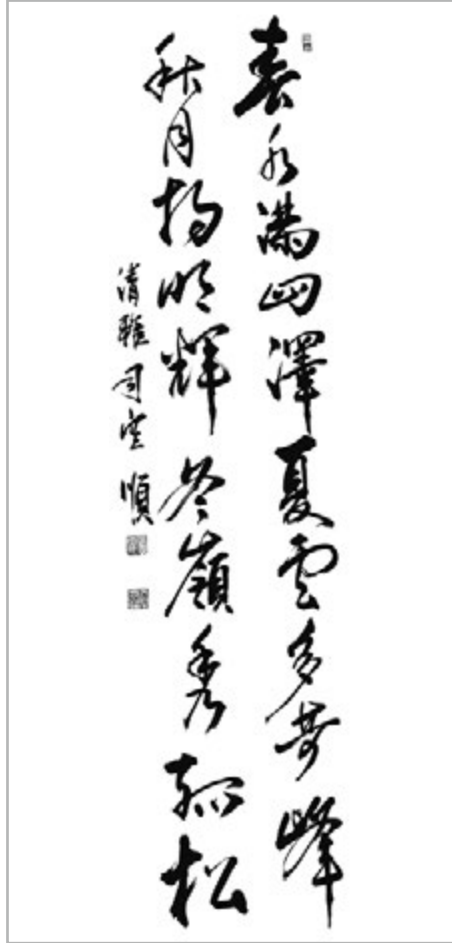 春水滿四澤夏雲多奇峰
秋月揚明輝冬嶺秀孤松
清雅司空順